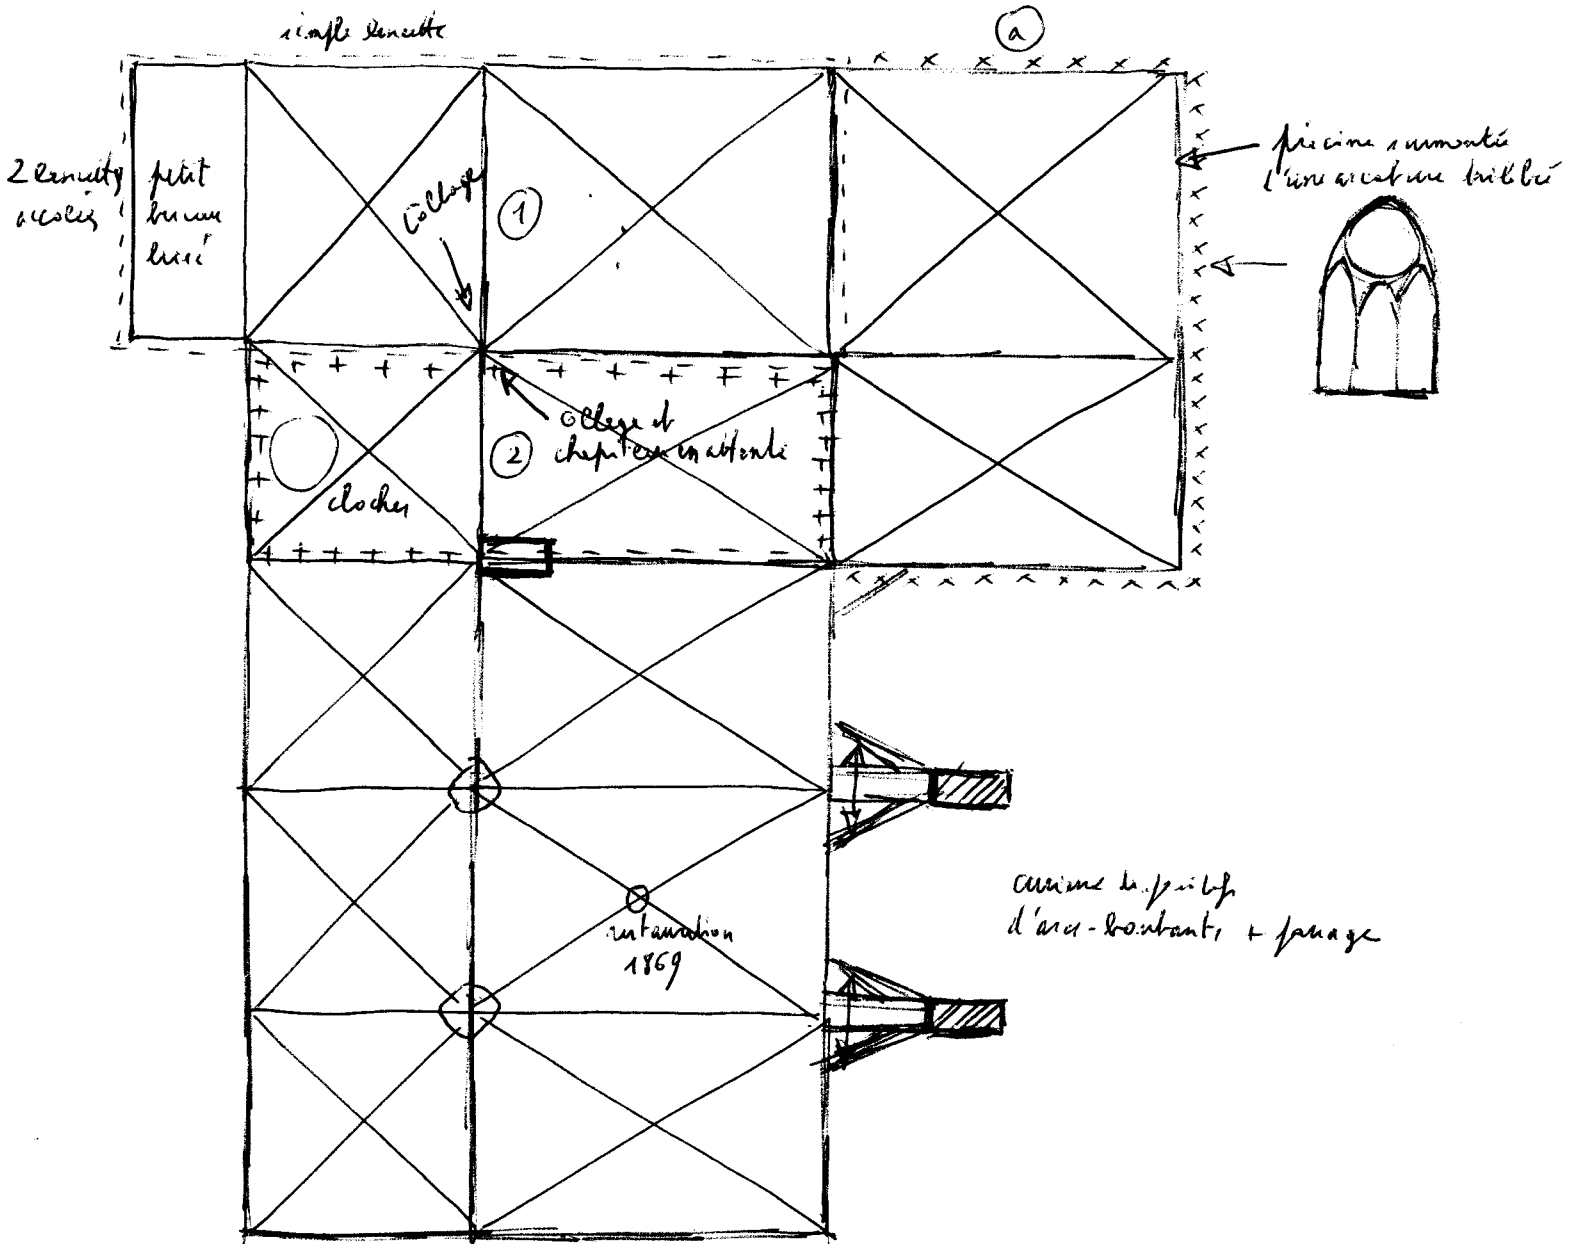 simple lancette
a
2 lancettes
accolées
petit
berceau
brisé
collage
1
piscine surmontée
d'une arcature trilobée
collage et
chapiteau en attente
2
clocher
restauration
1869
curieux dispositif
d'arcs-boutants + passage